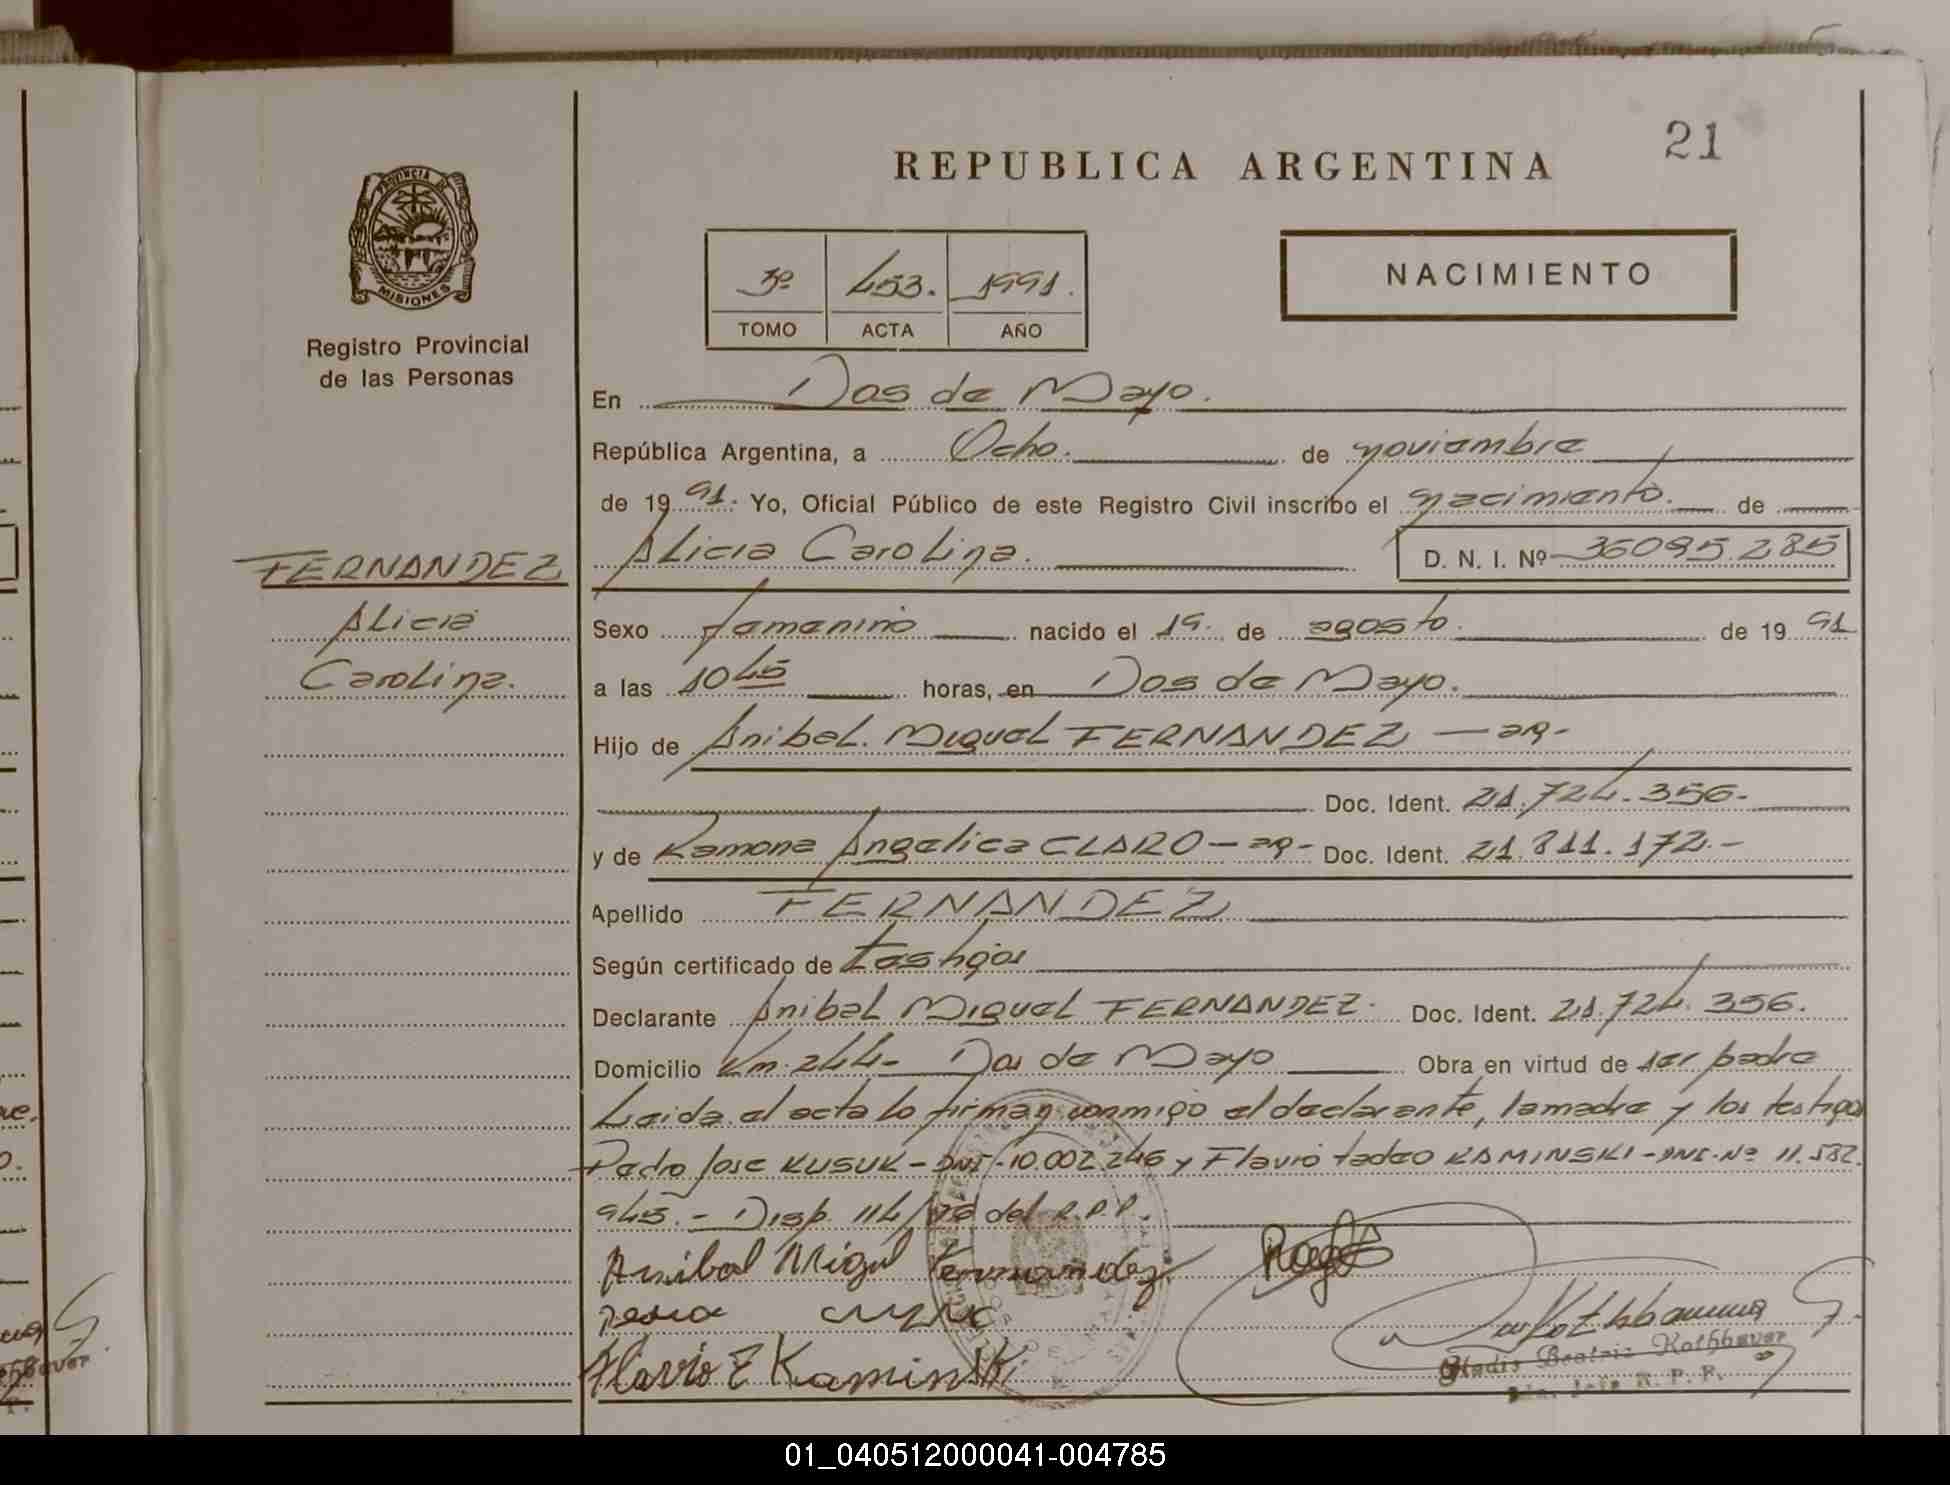 21
REPUBLICA ARGENTINA
PROVINCIA DE
MISIONES
Registro Provincial
de las Personas
3º 453. 1991.
TOMO ACTA AÑO
NACIMIENTO
En Dos de Mayo.
República Argentina, a Ocho. de noviembre
de 1991. Yo, Oficial Público de este Registro Civil inscribo el nacimiento. de
Alicia Carolina. D. N. I. Nº 36095.285
FERNANDEZ
Alicia
Carolina.
Sexo femenino nacido el 19. de agosto. de 1991
a las 10 45 horas, en Dos de Mayo.
Hijo de Anibal. Miguel FERNANDEZ — ar-
Doc. Ident. 21.724.356.-
y de Ramona Angelica CLARO - ar- Doc. Ident. 21.811.172.-
Apellido FERNANDEZ
Según certificado de testigos
Declarante Anibal Miguel FERNANDEZ. Doc. Ident. 21.724.356.
Domicilio Km. 244- Dos de Mayo Obra en virtud de ser padre
Leida el acta lo firman conmigo el declarante, la madre y los testigos
Pedro Jose KUSUK - DNI - 10.002.246 y Flavio tadeo KAMINSKI - DNI. Nº 11.582.
945. - Disp. 114/ del R.P.P.
Anibal Miguel Fernandez
Flavio T Kaminski
Gladis Beatriz Kothbauer
Jefe R. P. P.
01_040512000041-004785